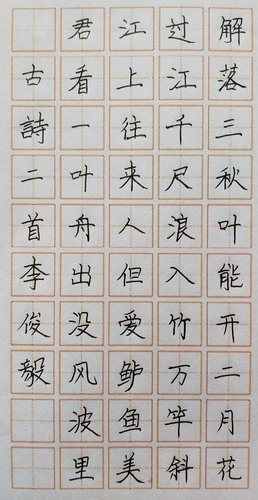 解落三秋叶能开二月花
过江千尺浪入竹万竿斜
江上往来人但爱鲈鱼美
君看一叶舟出没风波里
古詩二首李俊毅